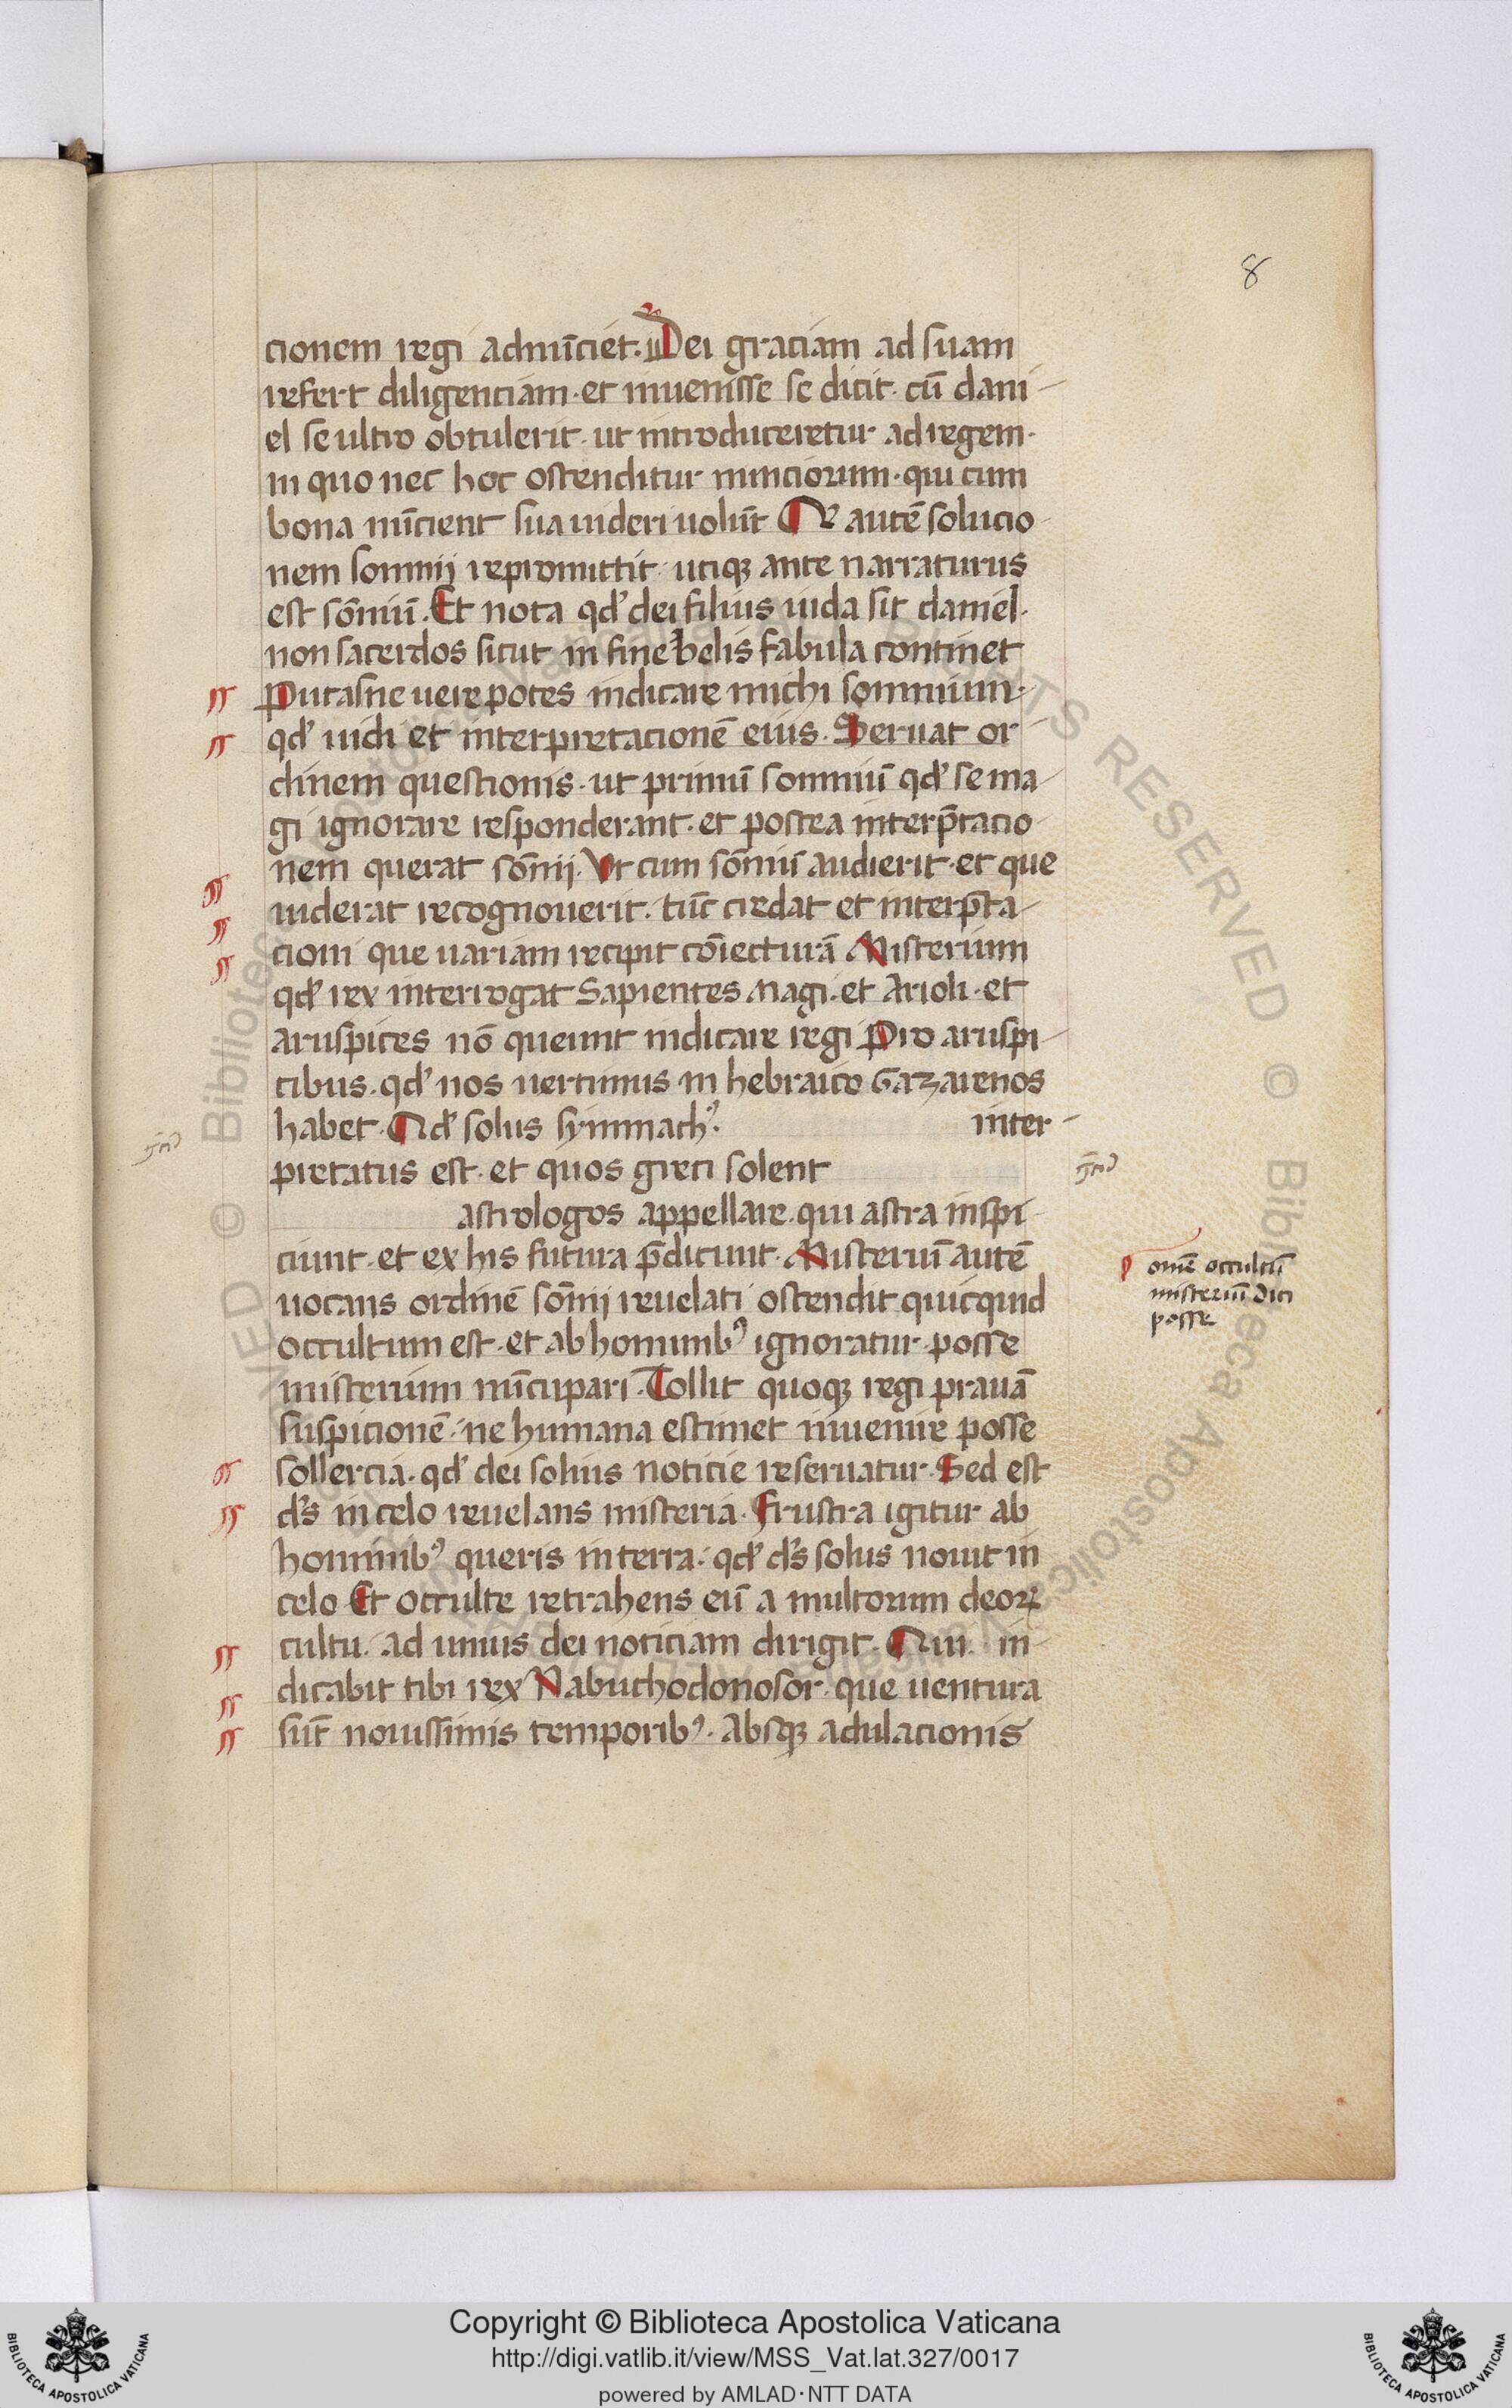 8
cionem regi adnūciet. Dei graciam ad suam
refert diligenciam · et inuenisse se dicit · cū dani-
el se ultro obtulerit · ut introduceretur ad regem ·
in quo nec hoc ostenditur nunciorum · qui cum
bona nūcient sua uideri uolūt Qr autē solucio-
nem somnij repromittit · utiqꝫ ante narraturus
est sōniū . Et nota qđ dei filius iuda sit daniel ·
non sacerdos sicut in fine belis fabula continet
Putasne uere potes indicare michi somnium ·
qđ uidi et interpretacionē eius . Seruat or-
dinem questionis · ut primū somniū qđ se ma-
gi ignorare responderant · et postea interp̄tacio-
nem querat sōnij . Vt cum sōniū audierit · et que
uiderat recognouerit · tūc credat et interp̄ta-
cioni que uariam recipit cōiecturā Misterium
qđ rex interrogat Sapientes Magi · et Arioli · et
aruspices nō queunt indicare regi Pro aruspi-
cibus · qđ nos uertimus in hebraico Gazarenos
habet · Qđ solus symmachꝰ . inter-
pretatus est · et quos greci solent
astrologos appellare · qui astra inspi-
ciunt · et ex his futura p̄dicunt · Misteriū autē
uocans ordinē sōnij reuelati ostendit quicquid
occultum est · et ab hominibꝰ ignoratur · posse
misterium nūcupari · Tollit quoqꝫ regi prauā
suspicionē · ne humana estimet inuenire posse
sollercia · qđ dei solius noticie reseruatur · Sed est
ds̄ in celo reuelans misteria · Frustra igitur ab
hominibꝰ queris in terra · qđ ds̄ solus nouit in
celo Et occulte retrahens eū a multorum deoꝝ
cultu · ad unius dei noticiam dirigit · Qui in-
dicabit tibi rex Nabuchodonosor · que uentura
sūt nouissimis temporibꝰ . Absqꝫ adulacionis
omē occultū
misteriū dici
posse
Copyright © Biblioteca Apostolica Vaticana
http://digi.vatlib.it/view/MSS_Vat.lat.327/0017
powered by AMLAD·NTT DATA
BIBLIOTECA APOSTOLICA VATICANA
BIBLIOTECA APOSTOLICA VATICANA